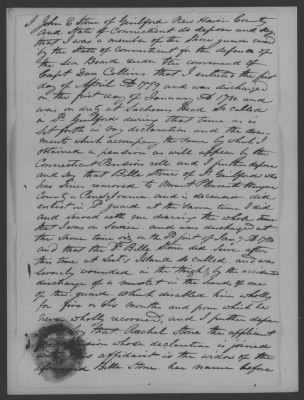 I John E Stone of Guilford New Haven County
and State of Connecticut do depose and say
that I was a member of the shore guard raised
by the State of Connecticut for the defence of
the Sea Board under the command of
Capt Dan Collins, that I enlisted the first
day of April AD 1779 and was discharged
on the first day of January AD 1780 and
was on duty at Sachems Head so called
in Sd Guilford during that time as is
set forth in my declaration and the docu-
ments which accompany the same by which I
obtained a pension as will appear by the
Connecticut Pension roll and I further depose
and say that Bille Stone of Sd Guilford who
has since removed to Mount Pleasant Wayne
County in Pensylvania and is deceased did
enlist in Sd guard at the same time I did
and served with me during the whole time
that I was on Service and was discharged at
the same time on the Sd first of Jany AD 1780
and that the Sd Bille Stone did serve after
this time at Leet's Island so called and was
severely wounded in the thigh by the accidental
discharge of a musket in the hands of one
of the guard which disabled him wholly
for five or six months and from which he
never wholly recovered, and I further depose
say that Rachel Stone the applicant
pension whose declaration is joined
this affidavit is the widow of the
aforesaid Bille Stone her name before